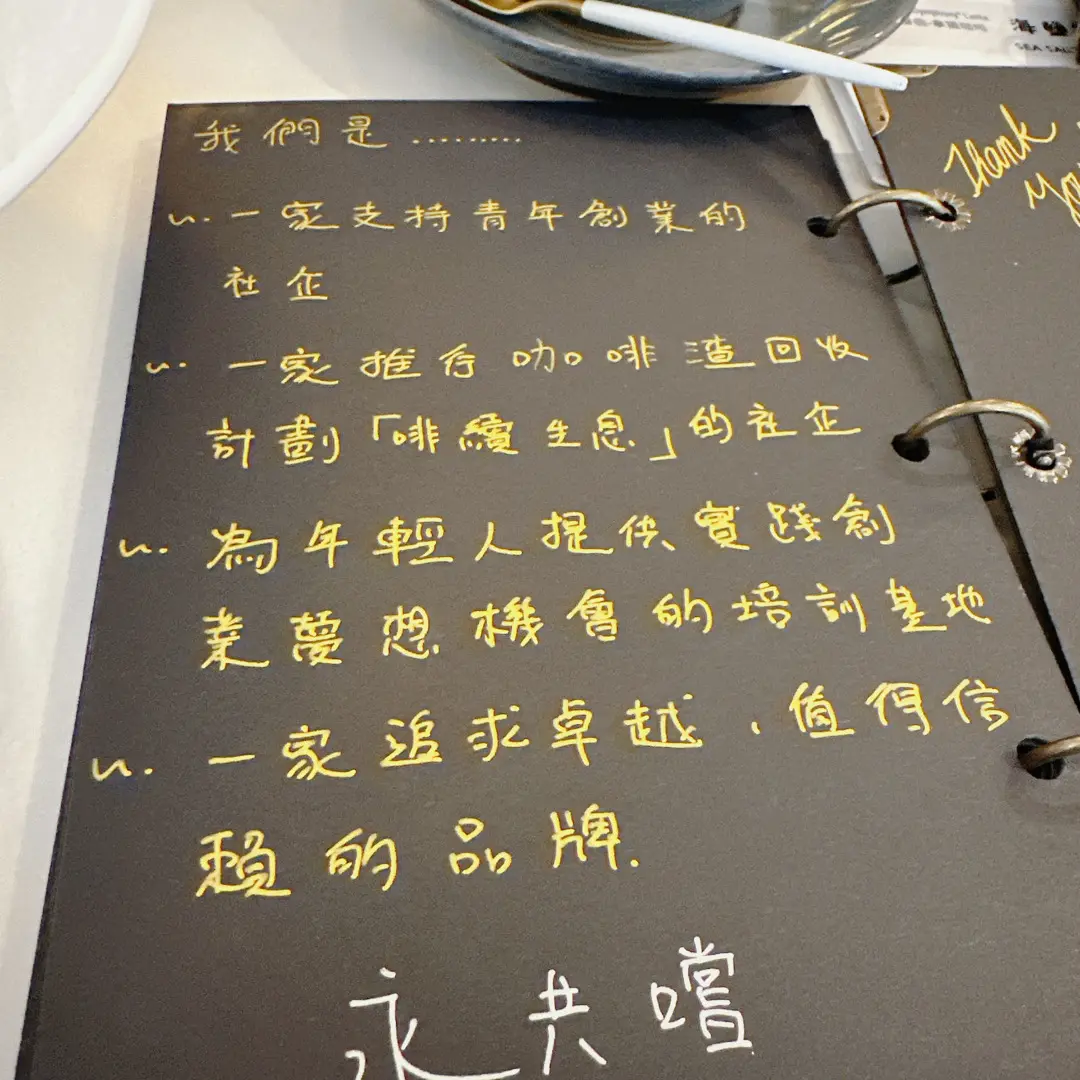 我們是.........
一家支持青年創業的
社企
一家推行咖啡渣回收
計劃「啡續生息」的社企
為年輕人提供實踐創
業夢想機會的培訓基地
一家追求卓越、值得信
賴的品牌.
永共嚐
Thank
You
SEA SAL